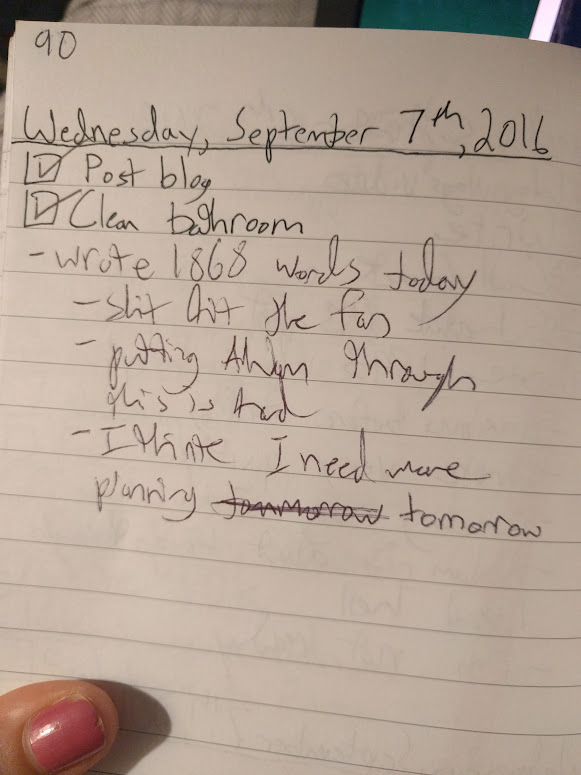 90
Wednesday, September 7th, 2016
☑ Post blog
☑ Clean bathroom
- wrote 1868 words today
- shit hit the fan
- putting through
this is hard
- I think I need more
planning tommorrow tomorrow